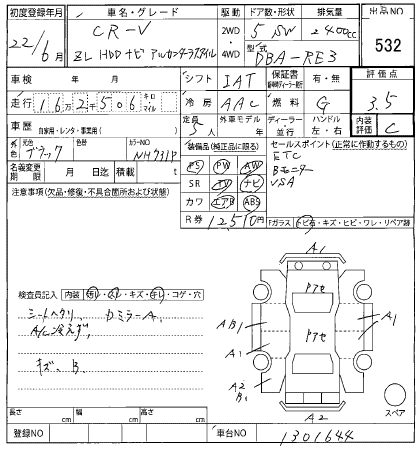 初度登録年月 車名・グレード 駆動 ドア数・形状 排気量 出品NO
22/6月 CR-V 2WD 5 SW 2400cc 532
ZL HDDナビ アルカンターラスタイル 4WD 型式 DBA-RE3
車検 年 月 シフト IAT 保証書 有・無 評価点
走行 16万2千506キロ・マイル 冷房 AAC 燃料 G 3.5
車歴 自家用・レンタ・事業用( ) 定員 5人 外車モデル 年 ディーラー 並行 ハンドル 左・右 内装評価 C
外色 元色 ブラック 色替 カラーNO NH731P 装備品(純正品に限る) セールスポイント(正常に作動するもの)
名義変更期限 月 日迄 積載 t PS PW AW ETC
注意事項(欠品・修復・不具合箇所および状態) SR TV ナビ Bモニター
カワ エアB ABS VSA
R券 12,510円 Fガラス トビ石・キズ・ヒビ・ワレ・リペア跡
A1
アセ
検査員記入 内装 キズ・コゲ・穴
シートヘタリ カミラーA1
A/C冷えず AB1 アセ A1
A1
キズ、B A2
B1
スペア
長さ cm 幅 cm 高さ cm A2
登録NO 車台NO 1301644